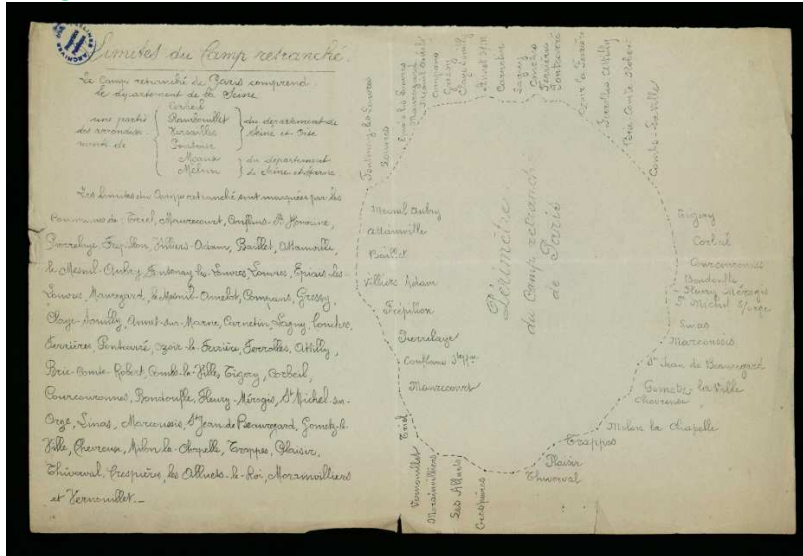 ARCHIVES
Limites du Camp retranché.
Le Camp retranché de Paris comprend
le département de la Seine
une partie
des arrondisse-
ments de
Corbeil
Rambouillet
Versailles
Pontoise
du département de
Seine et Oise
Meaux
Melun
du département
de Seine et Marne
Les limites du Camp retranché sont marquées par les
communes de : Triel, Maurecourt, Conflans-Ste Honorine,
Pierrelaye, Frépillon, Villiers-Adam, Baillet, Attainville,
le Mesnil-Aubry, Fontenay-les-Louvres, Louvres, Epiais-les-
Louvres, Mauregard, le Mesnil-Amelot, Compans, Gressy,
Claye-Souilly, Annet-sur-Marne, Carnetin, Lagny, Conches,
Ferrières, Pontcarré, Ozoir-la-Ferrière, Ferrolles, Attilly,
Brie-Comte-Robert, Combs-la-Ville, Tigery, Corbeil,
Courcouronnes, Bondoufle, Fleury-Mérogis, St Michel-sur-
Orge, Linas, Marcoussis, St Jean de Beauregard, Gometz-la-
Ville, Chevreuse, Milon-la-Chapelle, Trappes, Plaisir,
Thiverval, Crespières, les Alluets-le-Roi, Morainvilliers
et Vernouillet._
Périmètre
du Camp retranché
de Paris
Fontenay les Louvres
Louvres
Epiais les Louvres
Mauregard
Mesnil Amelot
Compans
Gressy
Claye Souilly
Annet s/M
Carnetin
Lagny
Conches
Ferrières
Pontcarré
Ozoir la Ferrière
Ferrolles Attilly
Brie Comte Robert
Combs-la-Ville
Mesnil Aubry
Attainville
Baillet
Villiers Adam
Frépillon
Pierrelaye
Conflans Ste Hne
Maurecourt
Triel
Vernouillet
Morainvilliers
Les Alluets
Crespières
Tigery
Corbeil
Courcouronnes
Bondoufle
Fleury Mérogis
St Michel s/Orge
Linas
Marcoussis
St Jean de Beauregard
Gometz-la-Ville
Chevreuse
Milon la Chapelle
Trappes
Plaisir
Thiverval